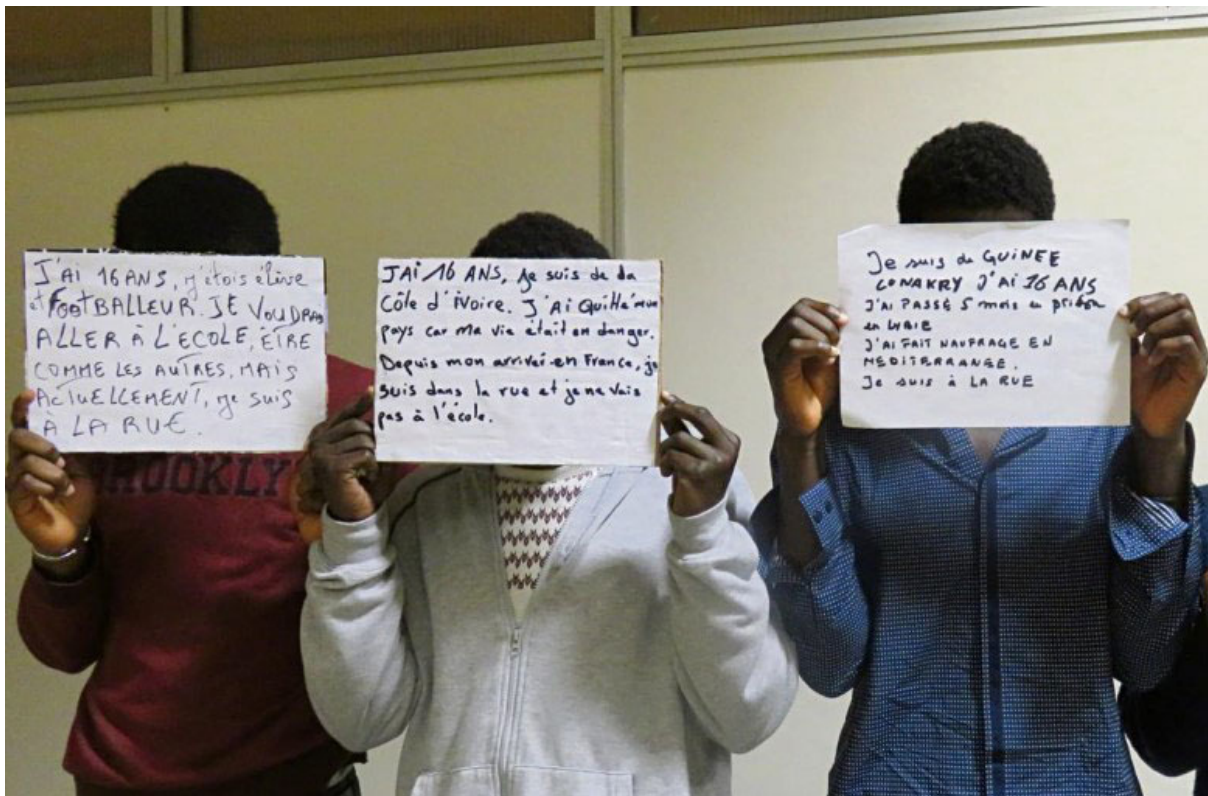 J'AI 16 ANS, j'étois élève
et FOOTBALLEUR. JE VOUDRAIS
ALLER À L'ECOLE, ÊTRE
COMME LES AUTRES, MAIS
ACTUELLEMENT, je suis
À LA RUE.
BROOKLY
JAi 16 ANS, je suis de la
Côte d'ivoire. J'Ai Quitté mon
pays car ma vie était en danger.
Depuis mon arrivéi en France, je
suis dans la rue et je ne vais
pas à l'école.
Je suis de GUINEE
CONAKRY J'Ai 16 ANS
J'Ai PASSÉ 5 mois en prison
en LYBIE
J'AI FAIT NAUFRAGE EN
MEDITERRANEE.
Je suis à LA RUE